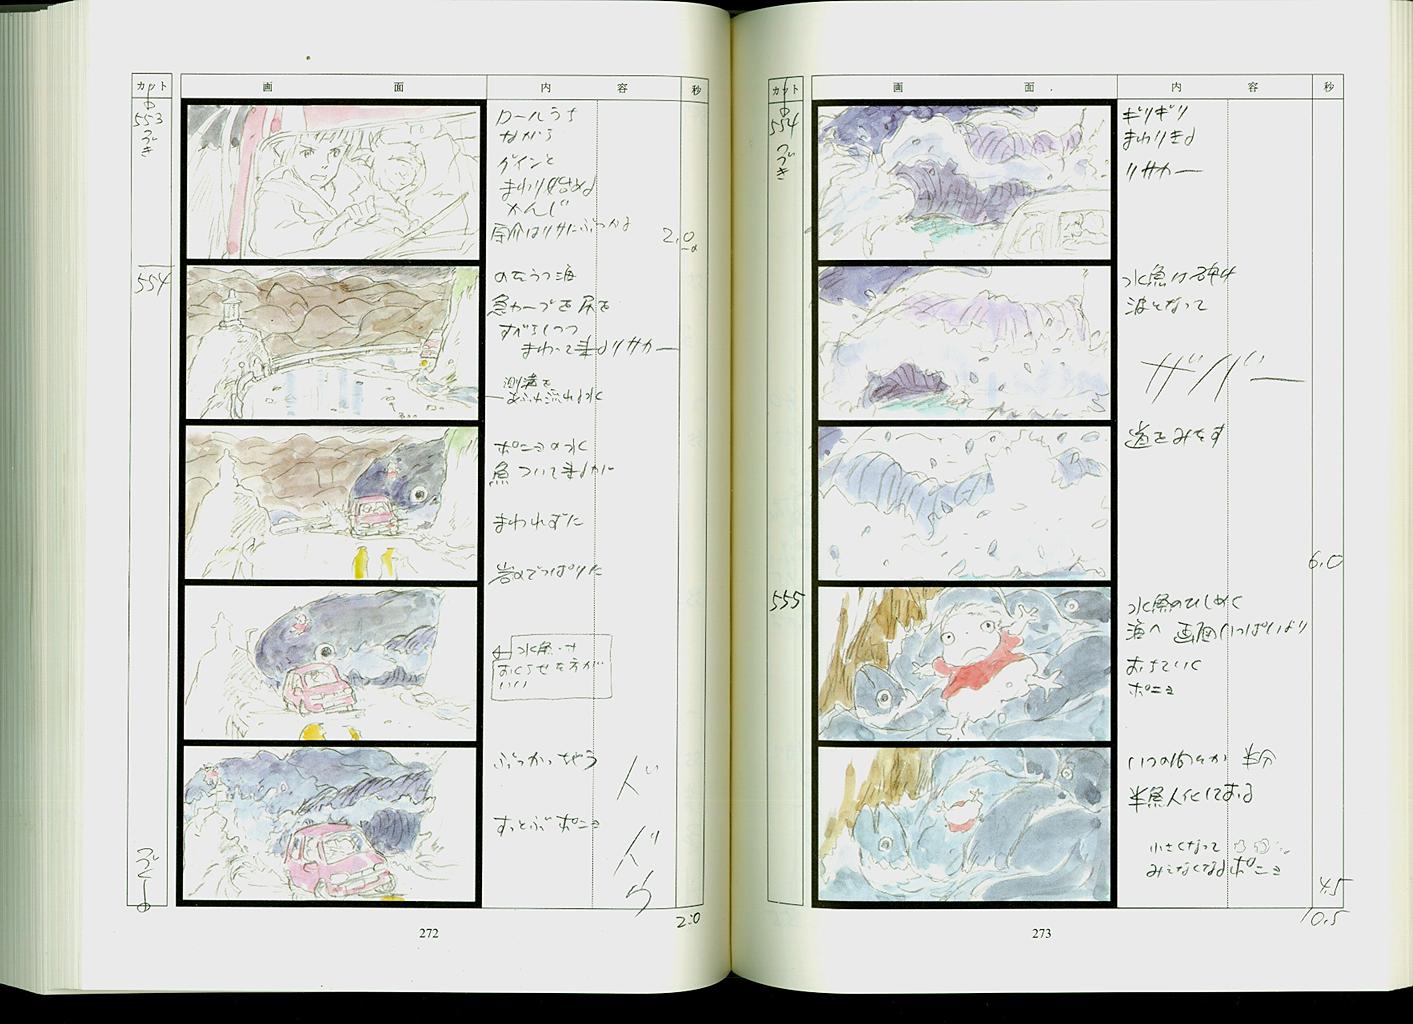 カット
画 面
内 容
秒
553
つづき
ロールうち
ながら
グインと
まわり始める
かんじ
宗介はリサにぶつかる
2.0
554
のたうつ海
急カーブを尻を
すべらしつつ
まわって来るリサカー
側溝を
あふれ流れる水
ポニョの水
魚ついて来るが
まわれずに
岩のでっぱりに
水魚
おくらせた方が
いい
ぶつかっちゃう
すっとぶポニョ
つづく
2.0
272
カット
画 面
内 容
秒
554
つづき
ギリギリ
まわりきる
リサカー
水魚はくだけ
波となって
ザバー
道をみたす
6.0
555
水魚のひしめく
海へ 画面いっぱいより
おちていく
ポニョ
いつの間にか 半分
半魚人化している
小さくなって
みえなくなるポニョ
4.5
10.5
273